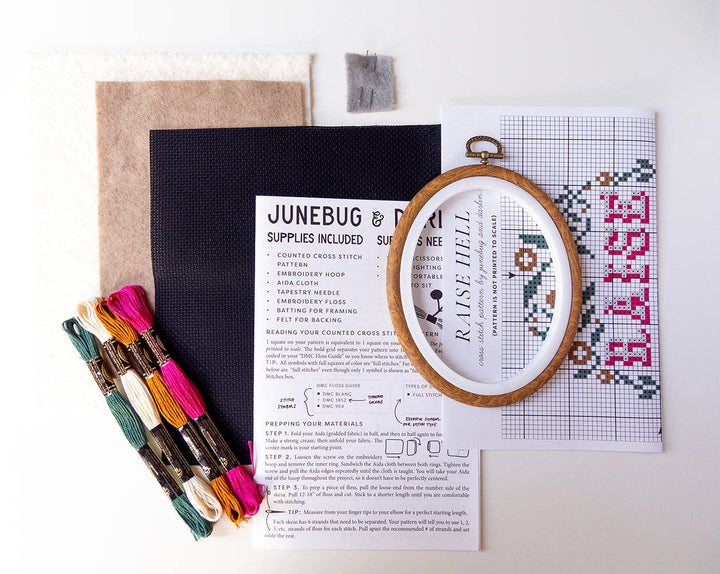 JUNEBUG & DARL
SUPPLIES INCLUDED
• COUNTED CROSS STITCH
PATTERN
• EMBROIDERY HOOP
• AIDA CLOTH
• TAPESTRY NEEDLE
• EMBROIDERY FLOSS
• BATTING FOR FRAMING
• FELT FOR BACKING
SUPPLIES NEE
SCISSORS
IGHTING
FORTABLE
TO SIT
READING YOUR COUNTED CROSS STITCH PATTERN
1 square on your pattern is equivalent to 1 square on your
printed to scale. The bold grid separates your pattern into
coded in your "DMC Floss Guide" so you know where to stitch
TIP: All symbols with full squares of color are "full stitches." For
below are "full stitches" even though only 1 symbol is shown as "full
Stitches box.
STITCH
SYMBOLS
DMC FLOSS GUIDE
■ DMC BLANC
■ DMC 3852
■ DMC 904
THREAD
COLORS
TYPES OF
■ FULL STITCH
EXAMPLE SYMBOLS
FOR STITCH TYPE
PREPPING YOUR MATERIALS
STEP 1. Fold your Aida (gridded fabric) in half, and then in half again to find
Make a strong crease, then unfold your fabric. The
center mark is your starting point.
STEP 2. Loosen the screw on the embroidery
hoop and remove the inner ring. Sandwich the Aida cloth between both rings. Tighten
the screw and pull the Aida edges repeatedly until the cloth is taught. You will take your Aida
out of the hoop throughout the project, so it doesn't have to be perfectly centered.
STEP 3. To prep a piece of floss, pull the loose end from the number side of the
skein. Pull 12-18" of floss and cut. Stick to a shorter length until you are comfortable
with stitching.
TIP: Measure from your finger tips to your elbow for a perfect starting length.
Each skein has 6 strands that need to be separated. Your pattern will tell you to use 1, 2,
3, etc. strands of floss for each stitch. Pull apart the recommended # of strands and set
aside the rest.
RAISE HELL
cross stitch pattern by junebug and darlin
(PATTERN IS NOT PRINTED TO SCALE)
RAISE